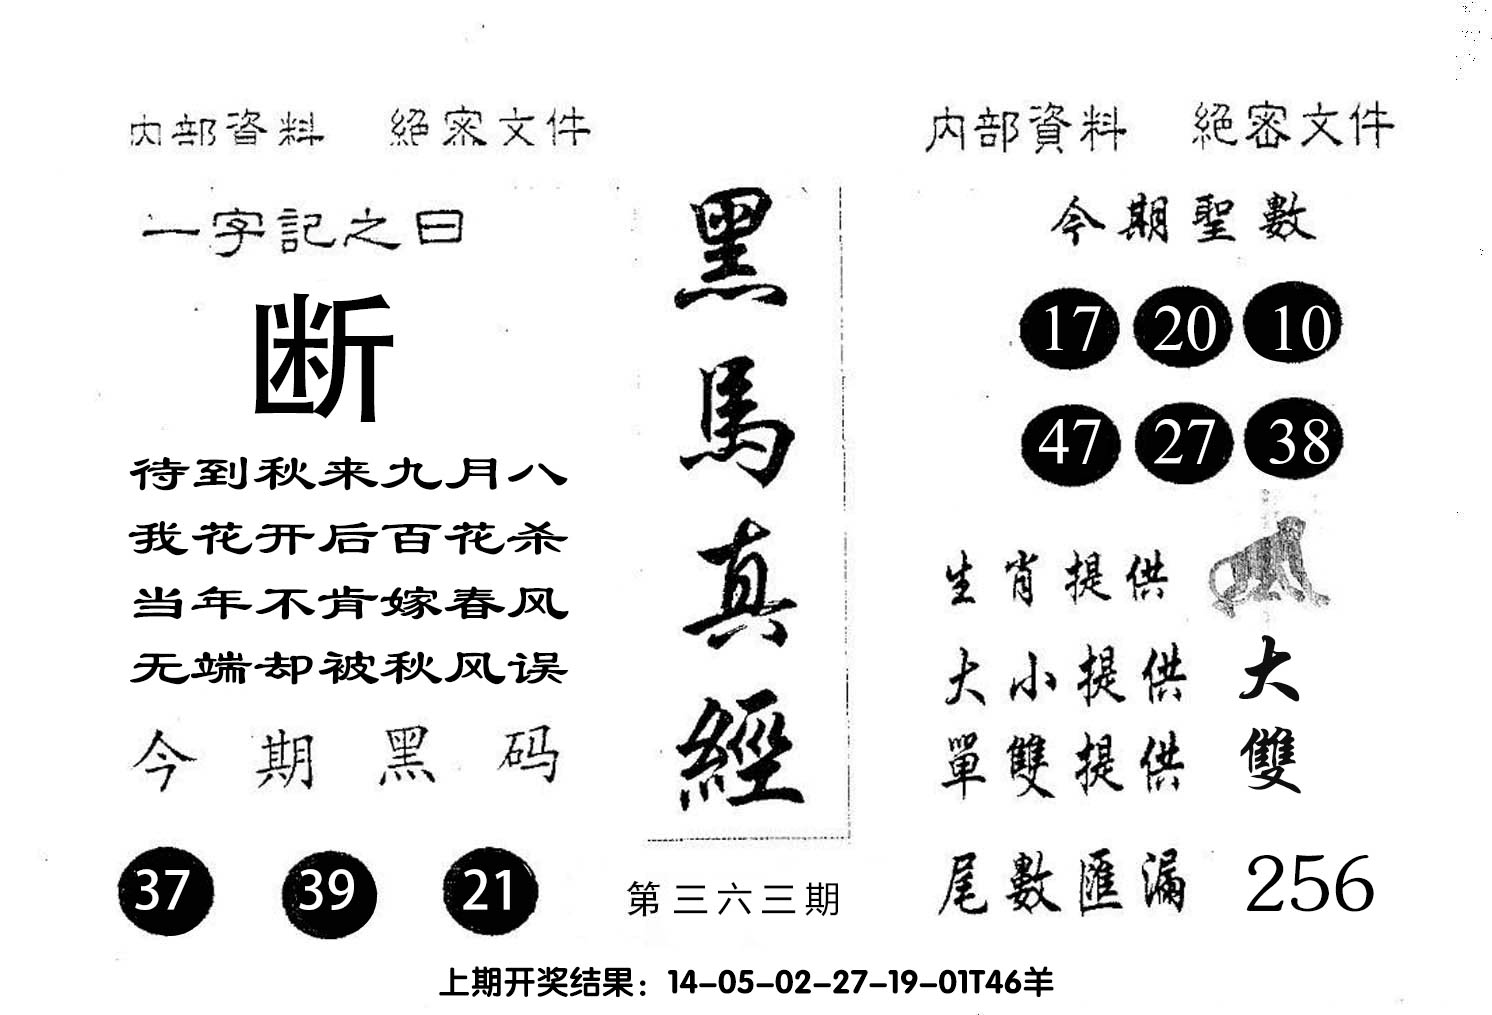 内部資料 絕密文件
一字記之曰
断
待到秋来九月八
我花开后百花杀
当年不肯嫁春风
无端却被秋风误
今期黑码
37 39 21
黑馬真經
第三六三期
内部資料 絕密文件
今期聖數
17 20 10
47 27 38
生肖提供
大小提供 大
單雙提供 雙
尾數匯漏 256
上期开奖结果：14-05-02-27-19-01T46羊